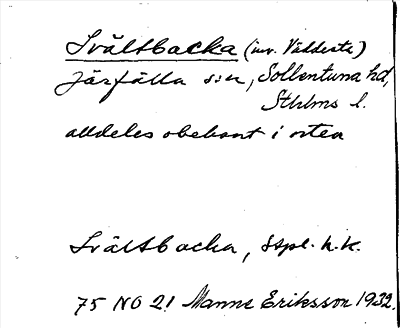 Svältbacka (inv. Väddesta)
Järfälla s:n, Sollentuna hd,
Sthlms l.
alldeles obekant i orten
Svältbacka, stpl. h.k.
75 NO 21 Manne Eriksson 1932.